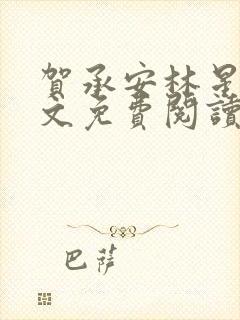 賀承安林星
文免費閱讀
巴薩